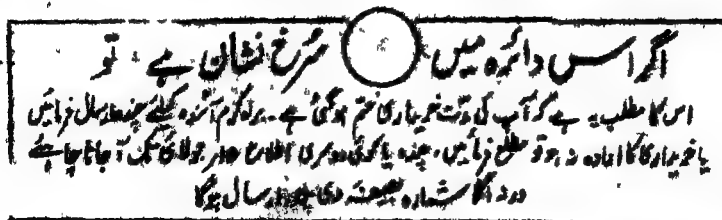 اگر اس دائرہ میں سُرخ نشان ہے، تو
اس کا مطلب یہ ہے کہ آپ کی مدّت خریداری ختم ہوگئی ہے۔ براہ کرم آئندہ کیلئے چندہ ارسال فرمائیں
یا خریداری کا ارادہ نہ ہو تو مطلع فرمائیں، چندہ یا کوئی دوسری اطلاع ۱۵ر جولائی تک آ جانا چاہئے
ورنہ اگلا شمارہ بصیغہ وی پی ارسال ہوگا